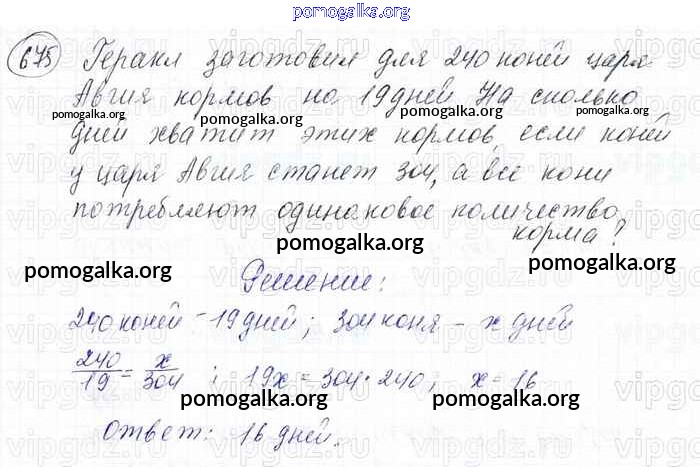 pomogalka.org
675 Геракл заготовил для 240 коней царя
Авгия кормов на 19 дней На сколько
pomogalka.org pomogalka.org pomogalka.org
дней хватит этих кормов, если коней
у царя Авгия станет 304, а все кони
потребляют одинаковое количество
корма?
pomogalka.org pomogalka.org pomogalka.org
Решение:
240 коней - 19 дней; 304 коня - x дней
240/19 = x/304 ; 19x = 304 · 240; x = 16
pomogalka.org pomogalka.org
Ответ: 16 дней.